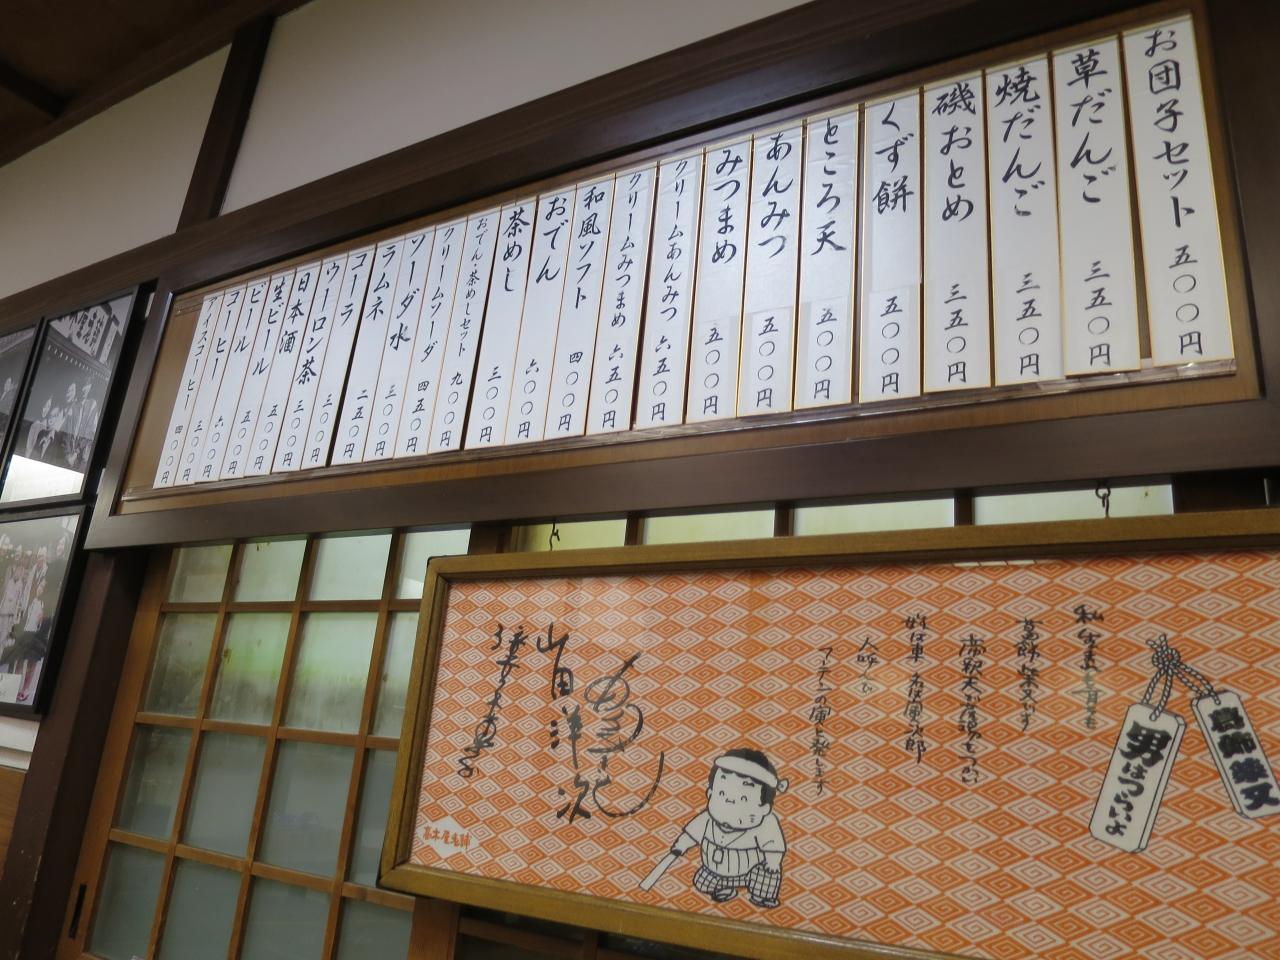 お団子セット 五〇〇円
草だんご 三五〇円
焼だんご 三五〇円
磯おとめ 三五〇円
くず餅 五〇〇円
ところ天 五〇〇円
あんみつ 五〇〇円
みつまめ 五〇〇円
クリームあんみつ 六五〇円
クリームみつまめ 六五〇円
和風ソフト 四〇〇円
おでん 六〇〇円
茶めし 三〇〇円
おでん・茶めしセット 九〇〇円
クリームソーダ 四五〇円
ソーダ水 三〇〇円
ラムネ 二五〇円
コーラ 三〇〇円
ウーロン茶 三〇〇円
日本酒 五〇〇円
生ビール 五〇〇円
ビール 六〇〇円
コーヒー 三〇〇円
アイスコーヒー 四〇〇円
葛飾柴又
男はつらいよ
私
葛飾柴又
姓は車
人呼んで
フーテンの寅と発します
山田洋次
高木屋老舗